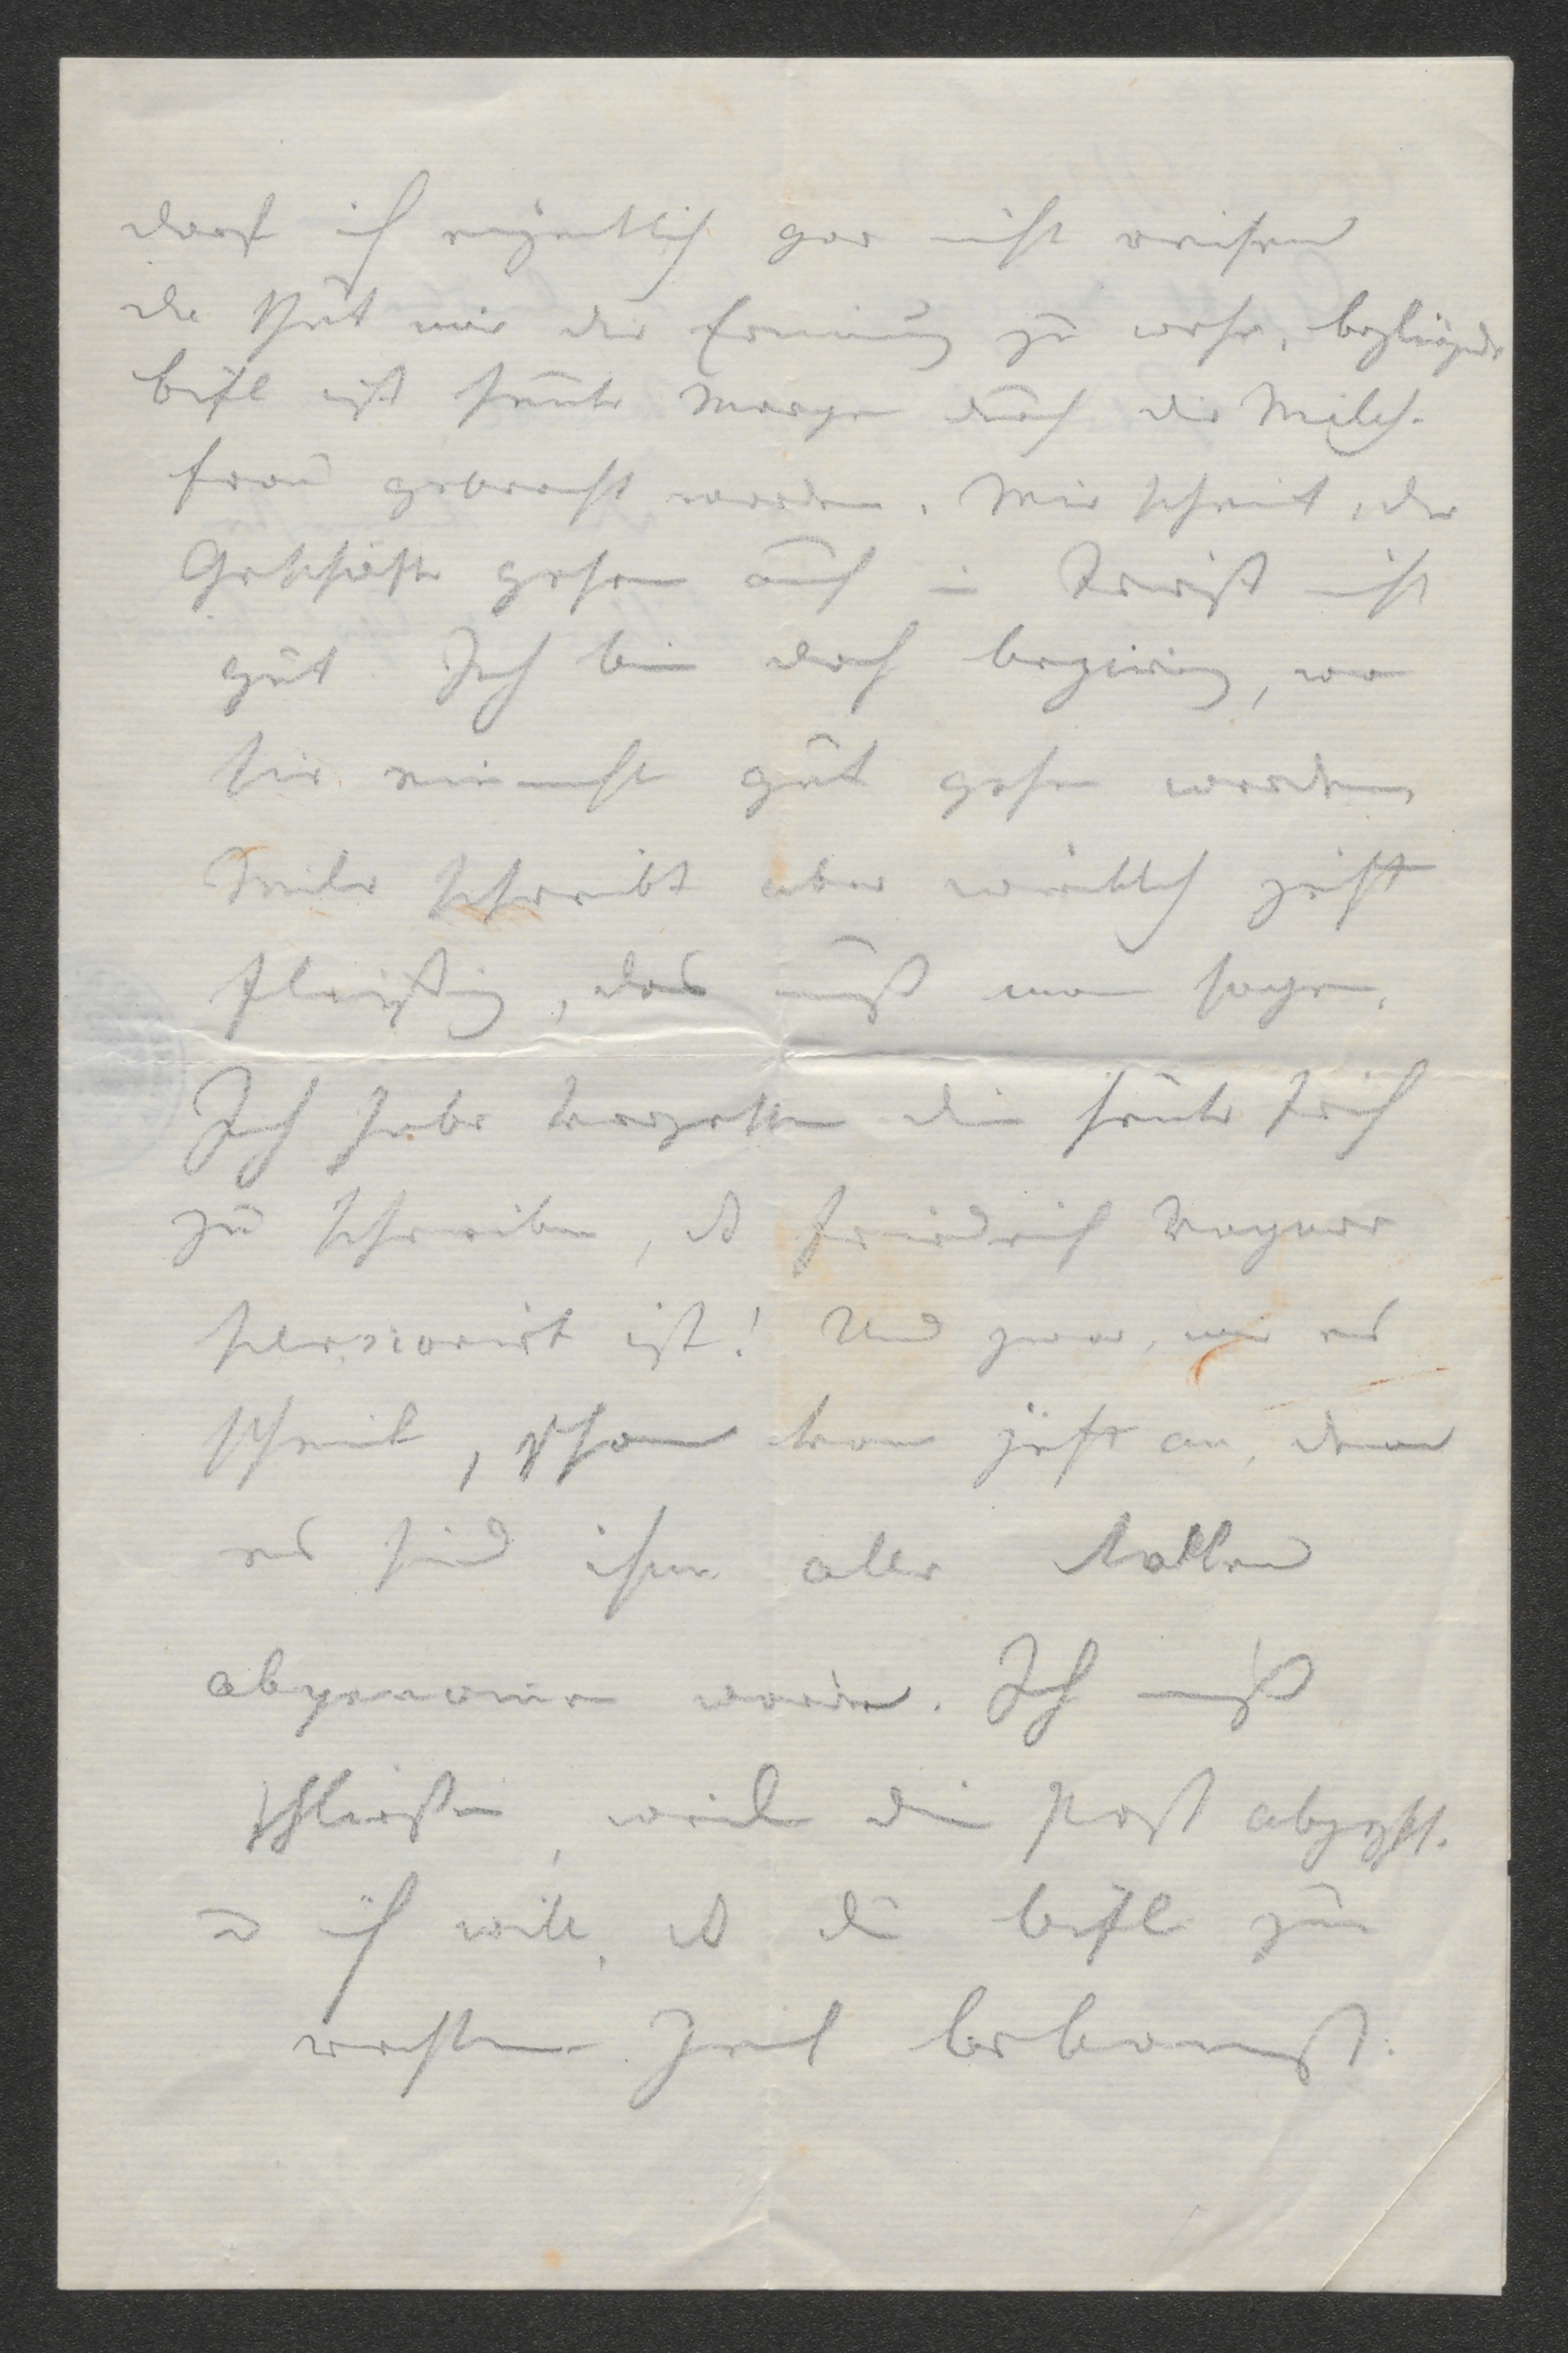 darf ich eigentlich gar nicht reisen
da thut mir die Erinnerung zu wehe. beyliegender
brfl ist heute Morgen durch die Milch-
frau gebracht worden. Mir scheint, die
Geschäfte gehen auch in Triest nicht
gut Ich bin doch begierig, wo
sie einmahl gut gehen werden
Mila schreibt aber wirklich jetzt
fleißig, das muß man sagen.
Ich habe vergessen dir heute früh
zu schreiben, daß Friedrich Wagner
pensionirt ist! Und zwar, wie es
scheint, schon von jetzt an, denn
es sind ihm alle Rollen
abgenommen worden. Ich muß
schließen, weil die Post abgeht.
u ich will, daß du brfl zur
rechten Zeit bekommst.